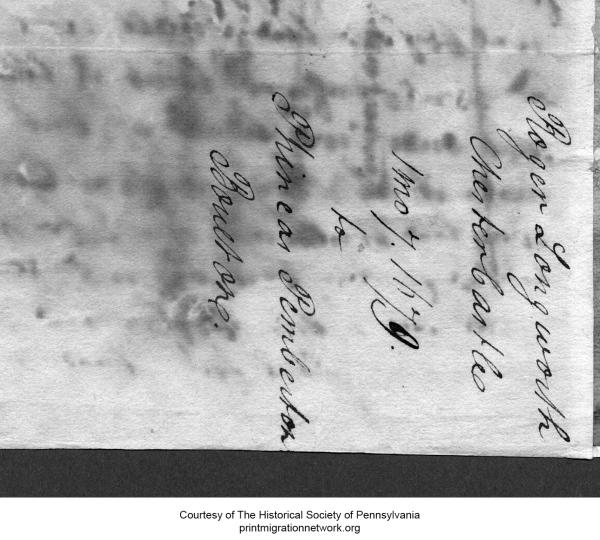 Roger Longworth
Chestercastle
1 mo 7. 1679.
to
Phineas Pemberton
Boultone.
Courtesy of The Historical Society of Pennsylvania
printmigrationnetwork.org